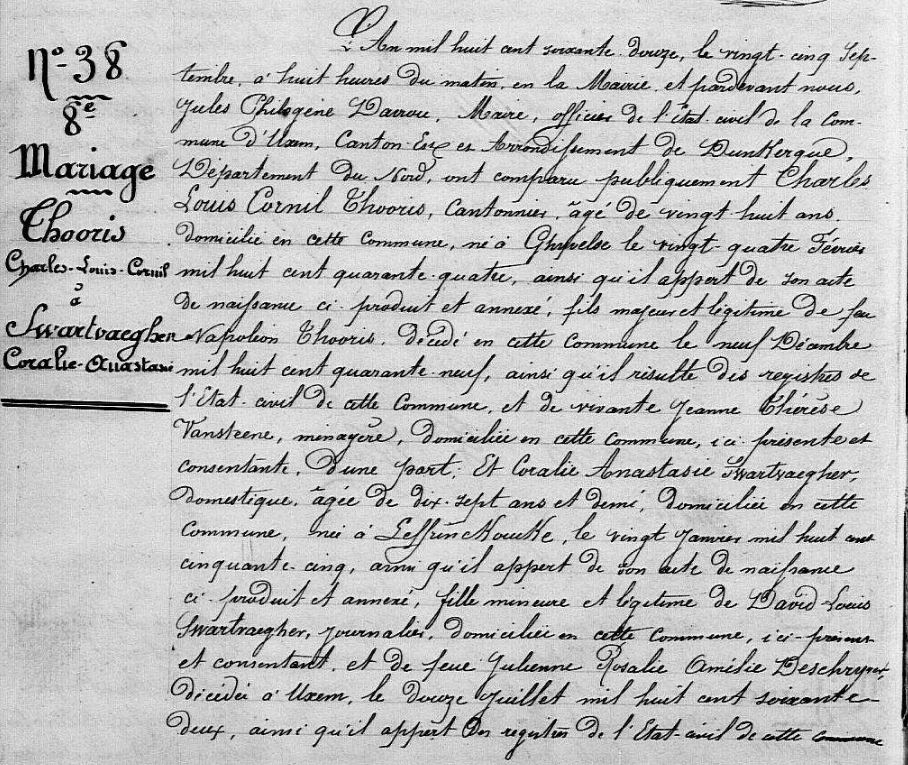 N° 38
8e
Mariage
Thooris
Charles-Louis-Cornil
à
Swartvaegher
Coralie-Anastasie
L'An mil huit cent soixante douze, le vingt-cinq Sep-
tembre, à huit heures du matin, en la Mairie et pardevant nous,
Jules Philogène Davrou, Maire, officier de l'Etat-civil de la Com-
mune d'Uxem, Canton Est et Arrondissement de Dunkerque,
Département du Nord, ont comparu publiquement Charles
Louis Cornil Thooris, Cantonnier, âgé de vingt huit ans,
domicilié en cette commune, né à Ghyvelde le vingt-quatre Février
mil huit cent quarante-quatre, ainsi qu'il appert de son acte
de naissance ci-produit et annexé, fils majeur et légitime de feu
Napoléon Thooris, décédé en cette Commune le neuf Décembre
mil huit cent quarante-neuf, ainsi qu'il résulte des registres de
l'Etat-civil de cette Commune, et de vivante Jeanne Thérèse
Vansteene, ménagère, domiciliée en cette commune, ici présente et
consentante, d'une part; Et Coralie Anastasie Swartvaegher,
domestique, âgée de dix-sept ans et demé, domiciliée en cette
Commune, née à Leffrinckoucke, le vingt Janvier mil huit cent
cinquante-cinq, ainsi qu'il appert de son acte de naissance
ci-produit et annexé, fille mineure et légitime de David-Louis
Swartvaegher, Journalier, domiciliée en cette commune, ici-présent
et consentant, et de feue Julienne Rosalie Amélie Deschryver,
décédée à Uxem, le douze Juillet mil huit cent soixante-
deux, ainsi qu'il appert des registres de l'Etat-civil de cette commune